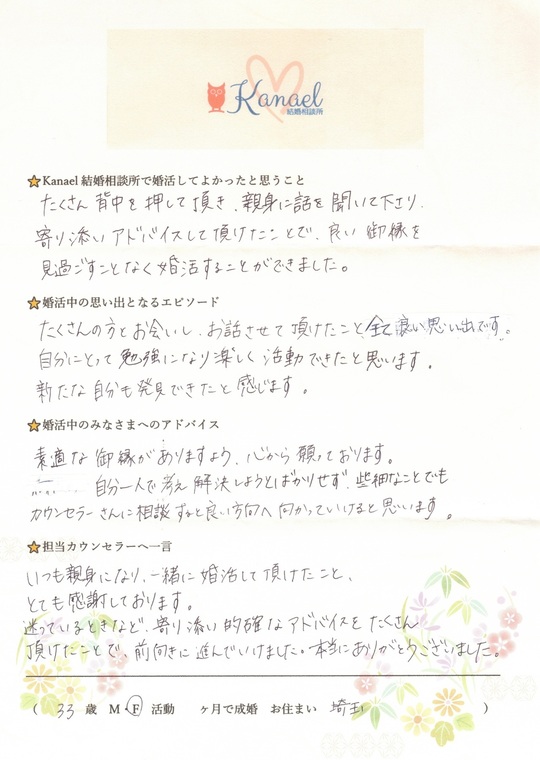 Kanael
結婚相談所
Kanael 結婚相談所で婚活してよかったと思うこと
たくさん 背中を 押して 頂き、親身に話を 聞いて下さり、
寄り添い アドバイスして 頂けたことで、良い 御縁を
見過ごすことなく 婚活することができました。
婚活中の思い出となるエピソード
たくさんの方とお会いし、お話させて 頂けたこと 全て良い思い出です。
自分にとって 勉強になり 楽しく 活動できたと思います。
新たな 自分も 発見できたと 感じます。
婚活中のみなさまへのアドバイス
素適な 御縁がありますよう、心から 願っております。
自分一人で 考え 解決しようとばかりせず、些細なことでも
カウンセラーさんに相談すると良い方向へ 向かっていけると思います。
担当カウンセラーへ一言
いつも親身になり、一緒に 婚活して 頂けたこと、
とても感謝しております。
迷っているときなど、寄り添い 的確なアドバイスを たくさん
頂けたことで、前向きに 進んでいけました。本当にありがとうございました。
( 33 歳 M・F 活動 ヶ月で成婚 お住まい 埼玉 )